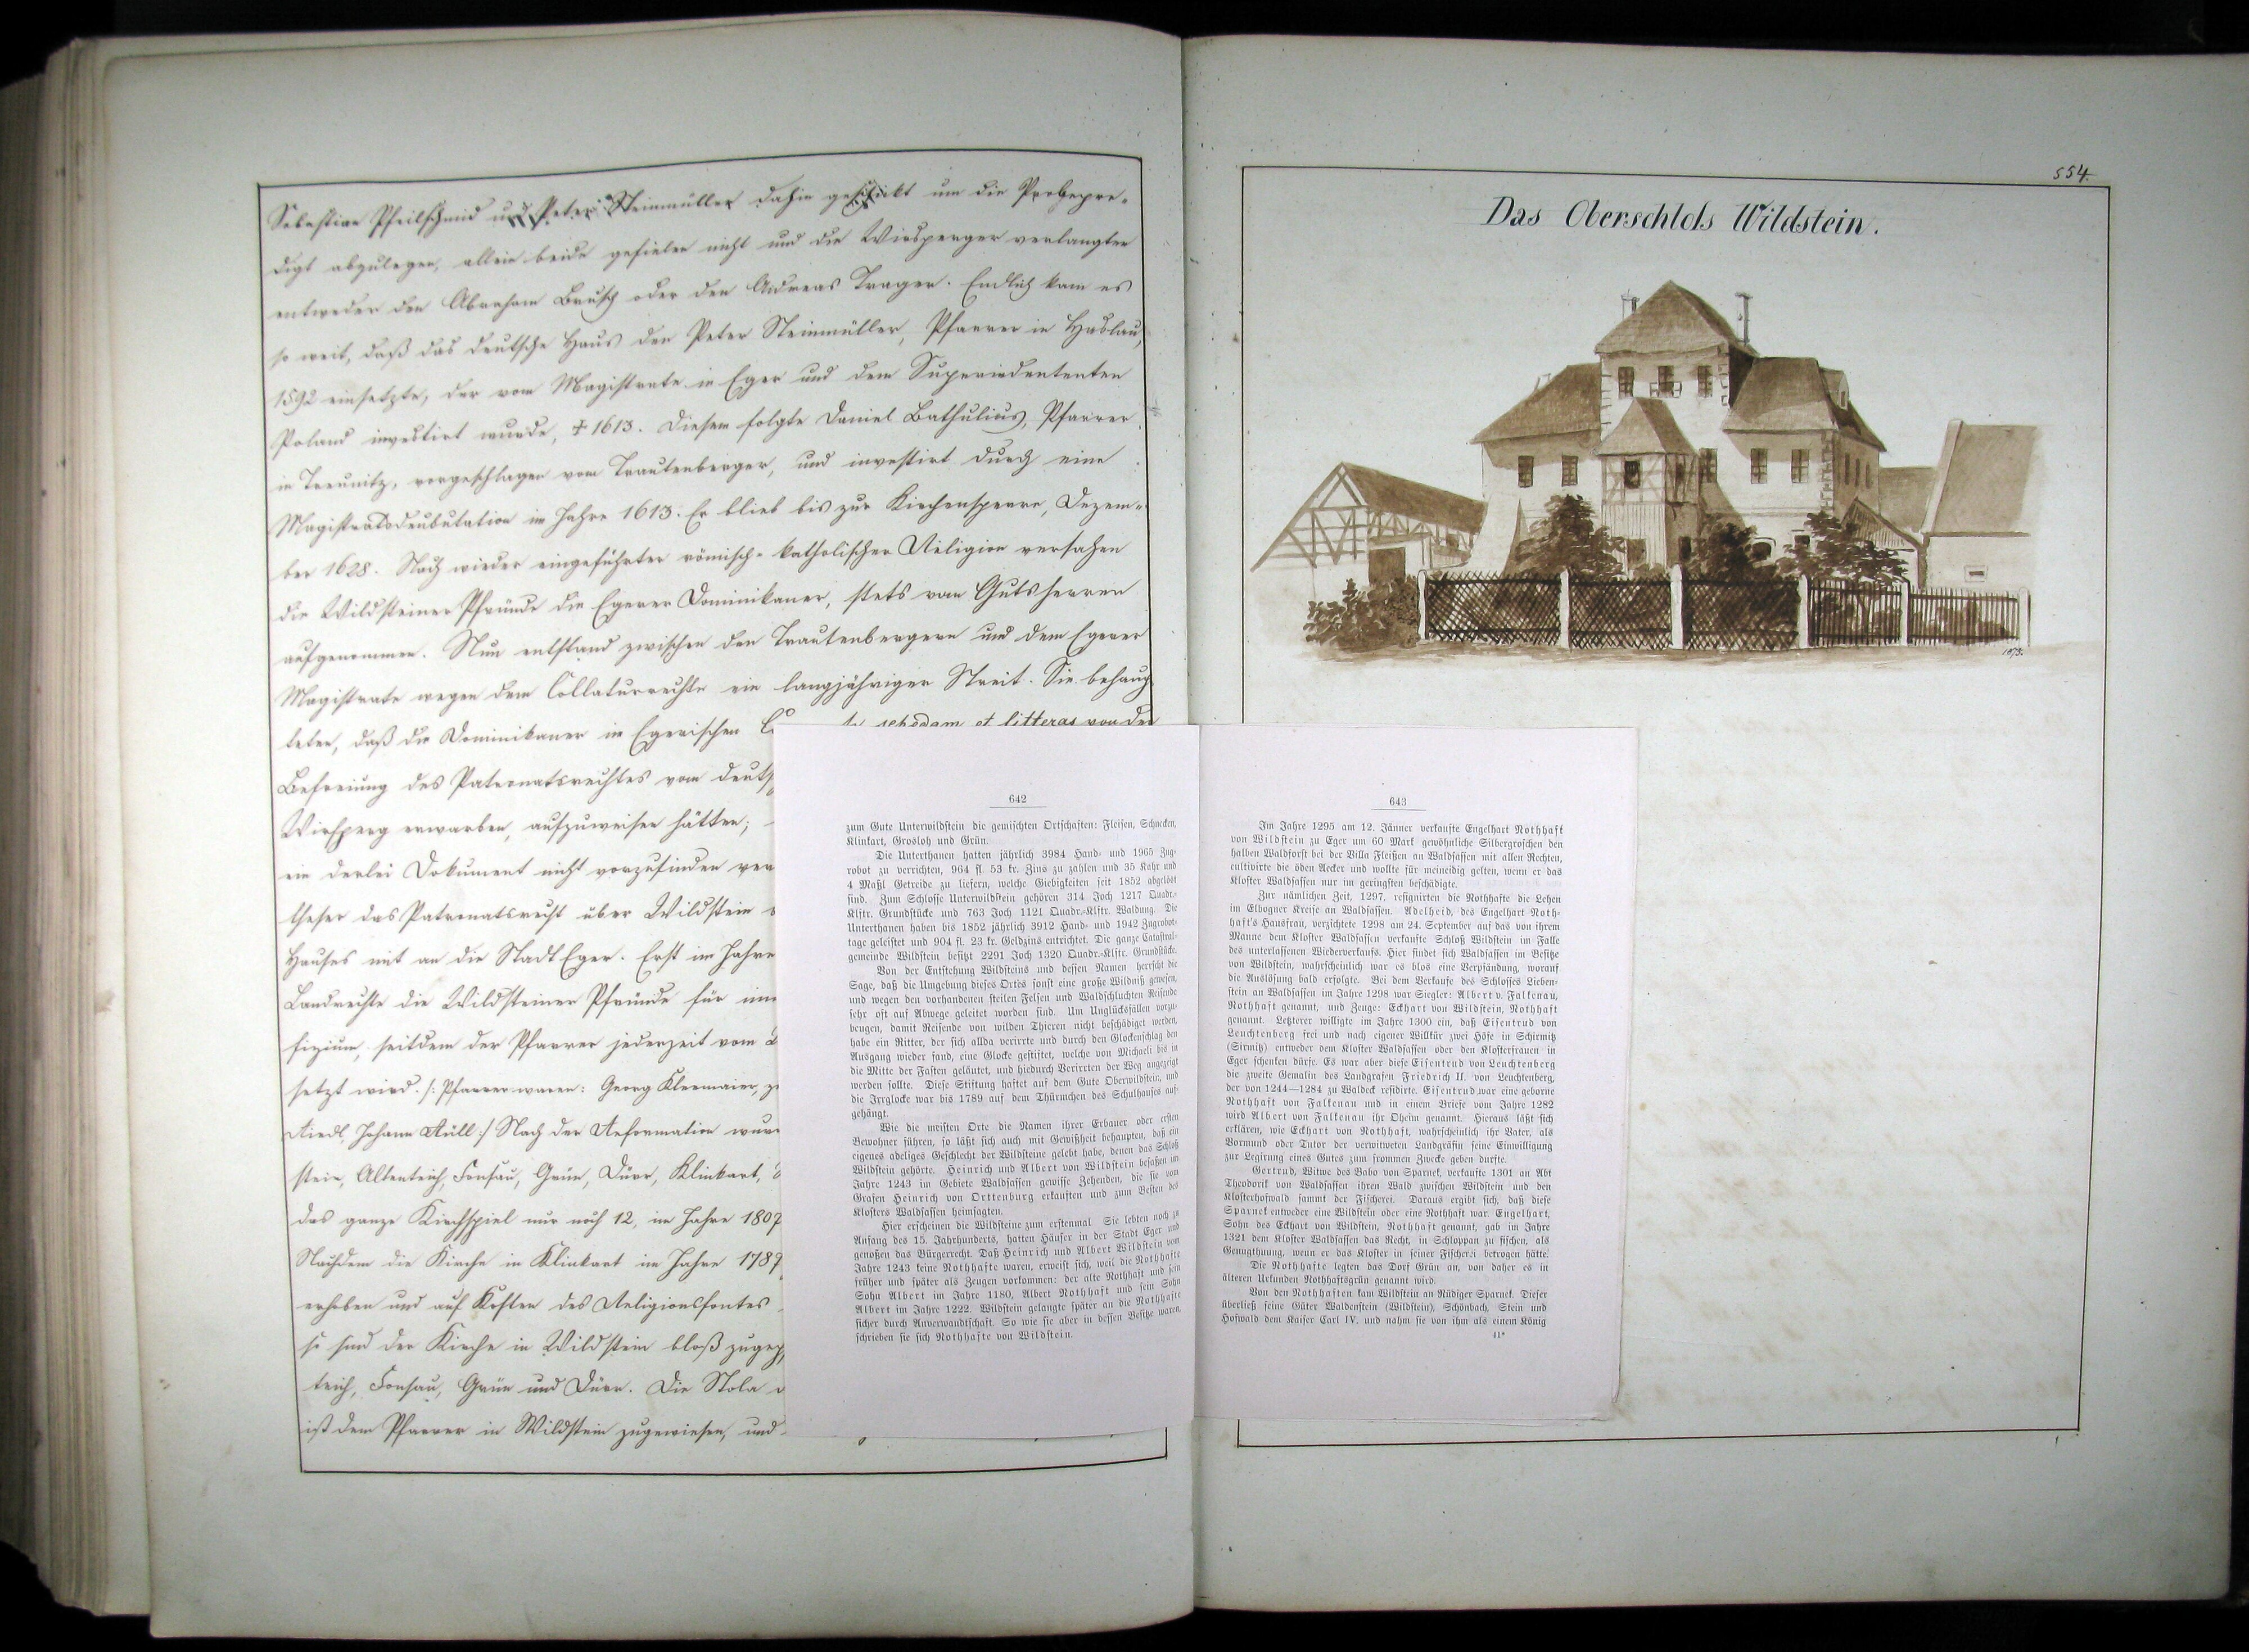 Sebastian Pfeilschmid und Peter Steinmüller dahin geschickt um die Probepre-
digt abzulegen, allein beide gefielen nicht und die Wirsperger verlangten
entweder den Abraham Brusch oder den Andreas Trager. Endlich kam es
so weit, daß das deutsche Haus den Peter Steinmüller, Pfarrer in Haslau,
1592 einsetzte, der vom Magistrate in Eger und dem Superindententen
Poland investirt wurde, † 1613. Diesem folgte Daniel Bathulius, Pfarrer
in Treunitz, vorgeschlagen vom Trautenberger, und investirt durch eine
Magistratsdeubutation im Jahre 1613. Er blieb bis zur Kirchensperre, Dezem-
ber 1628. Nach wieder eingeführter römisch-katholischer Religion versahen
die Wildsteiner Pfründe die Egerer Dominikaner, stets vom Gutsherren
aufgenommen. Nun entstand zwischen den Trautenbergern und dem Egerer
Magistrate wegen dem Collaturrechte ein langjähriger Streit. Sie behaup
teten, daß die Dominikaner im Egerischen schedam et litteras von der
Befreiung des Patronatsrechtes vom deuts
Wirsperg erwarben, aufzuweisen hätten;
ein derlei Dokument nicht vorzufinden
theser das Patronatsrecht über Wildstein
Hauses mit an die Stadt Eger. Erst im Jahre
Landrechte die Wildsteiner Pfründe für
fizium, seitdem der Pfarrer jederzeit vom
setzt wird. /: Pfarrer waren: Georg Kleemaier,
Riedl, Johann Rüll :/ Nach der Reformation
stein, Altenteich, Fonsau, Grün, Dürr, Klinkart,
das ganze Kirchspiel nur noch 12, im Jahre 1807
Nachdem die Kirche in Klinkart im Jahre 1787
erhoben und auf Kosten des Religionsfontes
so sind der Kirche in Wildstein bloß
teich, Fonsau, Grün und Dürr. Die Stola
ist dem Pfarrer in Wildstein zugewiesen, und
642
zum Gute Unterwildstein die gemischten Ortschaften: Fleisen, Schnecken,
Klinkart, Grosloh und Grün.
Die Unterthanen hatten jährlich 3984 Hand- und 1965 Zug-
robot zu verrichten, 964 fl. 53 kr. Zins zu zahlen und 35 Kahr und
4 Maßl Getreide zu liefern, welche Giebigkeiten seit 1852 abgelöst
sind. Zum Schlosse Unterwildstein gehören 314 Joch 1217 Quadr.-
Klftr. Grundstücke und 763 Joch 1121 Quadr.-Klftr. Waldung. Die
Unterthanen haben bis 1852 jährlich 3912 Hand- und 1942 Zugrobot-
tage geleistet und 904 fl. 23 kr. Geldzins entrichtet. Die ganze Catastral-
gemeinde Wildstein besitzt 2291 Joch 1320 Quadr.-Klftr. Grundstücke.
Von der Entstehung Wildsteins und dessen Namen herrscht die
Sage, daß die Umgebung dieses Ortes sonst eine große Wildniß gewesen,
und wegen den vorhandenen steilen Felsen und Waldschluchten Reisende
sehr oft auf Abwege geleitet worden sind. Um Unglücksfällen vorzu-
beugen, damit Reisende von wilden Thieren nicht beschädiget werden,
habe ein Ritter, der sich allda verirrte und durch den Glockenschlag den
Ausgang wieder fand, eine Glocke gestiftet, welche von Michaeli bis in
die Mitte der Fasten geläutet, und hiedurch Verirrten der Weg angezeigt
werden sollte. Diese Stiftung haftet auf dem Gute Oberwildstein, und
die Irrglocke war bis 1789 auf dem Thürmchen des Schulhauses auf-
gehängt.
Wie die meisten Orte die Namen ihrer Erbauer oder ersten
Bewohner führen, so läßt sich auch mit Gewißheit behaupten, daß ein
eigenes adeliges Geschlecht der Wildsteine gelebt habe, denen das Schloß
Wildstein gehörte. Heinrich und Albert von Wildstein besaßen im
Jahre 1243 im Gebiete Waldsassen gewisse Zehenden, die sie vom
Grafen Heinrich von Orttenburg erkauften und zum Besten des
Klosters Waldsassen heimsagten.
Hier erscheinen die Wildsteine zum erstenmal. Sie lebten noch zu
Anfang des 15. Jahrhunderts, hatten Häuser in der Stadt Eger und
genoßen das Bürgerrecht. Daß Heinrich und Albert Wildstein vom
Jahre 1243 keine Nothhafte waren, erweist sich, weil die Nothhafte
früher und später als Zeugen vorkommen: der alte Nothhaft und sein
Sohn Albert im Jahre 1180, Albert Nothhaft und sein Sohn
Albert im Jahre 1222. Wildstein gelangte später an die Nothhafte
sicher durch Anverwandtschaft. So wie sie aber in dessen Besitze waren,
schrieben sie sich Nothhafte von Wildstein.
554.
Das Oberschloß Wildstein.
1873.
643
Im Jahre 1295 am 12. Jänner verkaufte Engelhart Nothhaft
von Wildstein zu Eger um 60 Mark gewöhnliche Silbergroschen den
halben Waldforst bei der Villa Fleißen an Waldsassen mit allen Rechten,
cultivirte die öden Aecker und wollte für meineidig gelten, wenn er das
Kloster Waldsassen nur im geringsten beschädigte.
Zur nämlichen Zeit, 1297, resignirten die Nothhafte die Lehen
im Elbogner Kreise an Waldsassen. Adelheid, des Engelhart Noth-
haft's Hausfrau, verzichtete 1298 am 24. September auf das von ihrem
Manne dem Kloster Waldsassen verkaufte Schloß Wildstein im Falle
des unterlassenen Wiederverkaufs. Hier findet sich Waldsassen im Besitze
von Wildstein, wahrscheinlich war es blos eine Verpfändung, worauf
die Auslösung bald erfolgte. Bei dem Verkaufe des Schlosses Lieben-
stein an Waldsassen im Jahre 1298 war Siegler: Albert v. Falkenau,
Nothhaft genannt, und Zeuge: Eckhart von Wildstein, Nothhaft
genannt. Letzterer willigte im Jahre 1300 ein, daß Eisentrud von
Leuchtenberg frei und nach eigener Willkür zwei Höfe in Schirmitz
(Sirmitz) entweder dem Kloster Waldsassen oder den Klosterfrauen in
Eger schenken dürfe. Es war aber diese Eisentrud von Leuchtenberg
die zweite Gemalin des Landgrafen Friedrich II. von Leuchtenberg,
der von 1244—1284 zu Waldeck residirte. Eisentrud war eine geborne
Nothhaft von Falkenau und in einem Briefe vom Jahre 1282
wird Albert von Falkenau ihr Oheim genannt. Hieraus läßt sich
erklären, wie Eckhart von Nothhaft, wahrscheinlich ihr Vater, als
Vormund oder Tutor der verwitweten Landgräfin seine Einwilligung
zur Legirung eines Gutes zum frommen Zwecke geben durfte.
Gertrud, Witwe des Babo von Sparnek, verkaufte 1301 an Abt
Theodorik von Waldsassen ihren Wald zwischen Wildstein und den
Klosterhofwald sammt der Fischerei. Daraus ergibt sich, daß diese
Sparnek entweder eine Wildstein oder eine Nothhaft war. Engelhart,
Sohn des Eckhart von Wildstein, Nothhaft genannt, gab im Jahre
1321 dem Kloster Waldsassen das Recht, in Schloppan zu fischen, als
Genugthuung, wenn er das Kloster in seiner Fischerei betrogen hätte.
Die Nothhafte legten das Dorf Grün an, von daher es in
älteren Urkunden Nothhaftsgrün genannt wird.
Von den Nothhaften kam Wildstein an Rüdiger Sparnek. Dieser
überließ seine Güter Waldenstein (Wildstein), Schönbach, Stein und
Hofwald dem Kaiser Carl IV. und nahm sie von ihm als einem König
41*